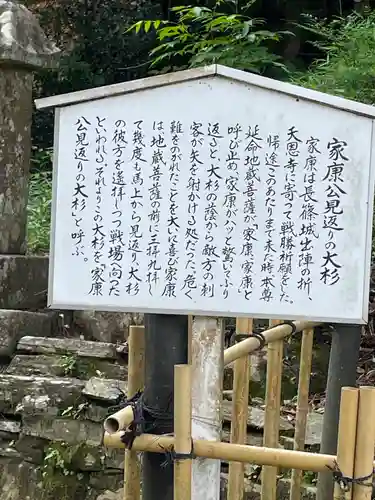 家康公見返りの大杉
家康は長篠城出陣の折、
天恩寺に寄って戦勝祈願をした。
帰途このあたりまで来た時本尊
延命地蔵菩薩が「家康、家康」と
呼び止め、家康がハッと驚いてふり
返ると、大杉の陰から敵方の刺
客が矢を射かける処だった。危く
難をのがれたことを大いに喜び家康
は地蔵菩薩の前に三拝九拝し
て幾度も道の上から見返り、大杉
の彼方を遙拝しつつ戦場へ向った
といわれ、それよりこの大杉を「家康
公見返りの大杉」と呼ぶ。